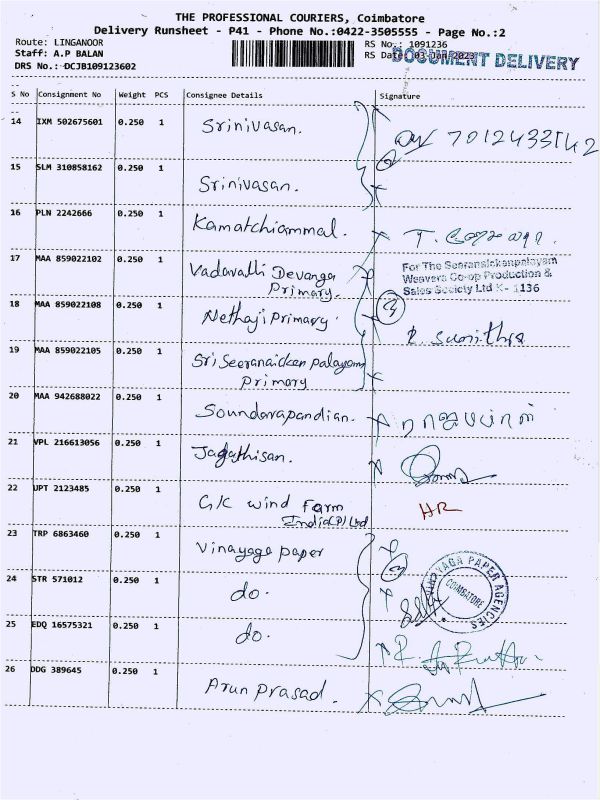 THE PROFESSIONAL COURIERS, Coimbatore
Delivery Runsheet - P41 - Phone No.:0422-3505555 - Page No.:2
Route: LINGANOOR
RS No.: 1091236
Staff: A.P BALAN
RS Date: 03-Jan-2023
DOCUMENT DELIVERY
DRS No.: DCJB109123602
S No Consignment No Weight PCS Consignee Details Signature
14 IXM 502675601 0.250 1 Srinivasan.
7012433542
15 SLM 310858162 0.250 1 Srinivasan.
16 PLN 2242666 0.250 1 Kamatchiammal.
17 MAA 859022102 0.250 1 Vadavalli Devanga
Primary.
For The Seeranaickenpalayam
Weavers Co-op Production &
Sales Society Ltd K- 1136
18 MAA 859022108 0.250 1 Nethaji Primary
R. Sumithra
19 MAA 859022105 0.250 1 Sri Seeranaicken Palayam
Primary
20 MAA 942688022 0.250 1 Soundarapandian.
21 VPL 216613056 0.250 1 Jagathisan.
22 UPT 2123485 0.250 1 GK wind Farm
India(P) Ltd
HR
23 TRP 6863460 0.250 1 Vinayaga paper
3
24 STR 571012 0.250 1 do.
VINAYAGA PAPER AGENCIES
COIMBATORE
25 EDQ 16575321 0.250 1 do.
26 DDG 389645 0.250 1 Arun Prasad.